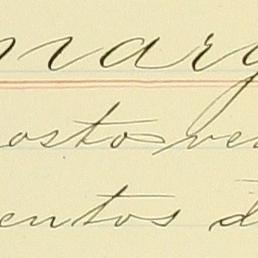 mary
osto ve
entos d